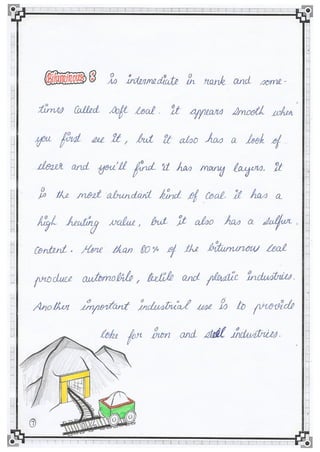 Bituminous : is intermediate in rank and some-
times called soft coal. it appears smooth when
you first see it, but it also has a look of
closer and you'll find it has many layers. it
is the most abundant kind of coal it has a
high heating value, but it also has a sulfur
content. More than 80% of the bituminous coal
produce automobile, textile and plastic industries.
Another important industrial use is to provide
coke for iron and steel industries.
7